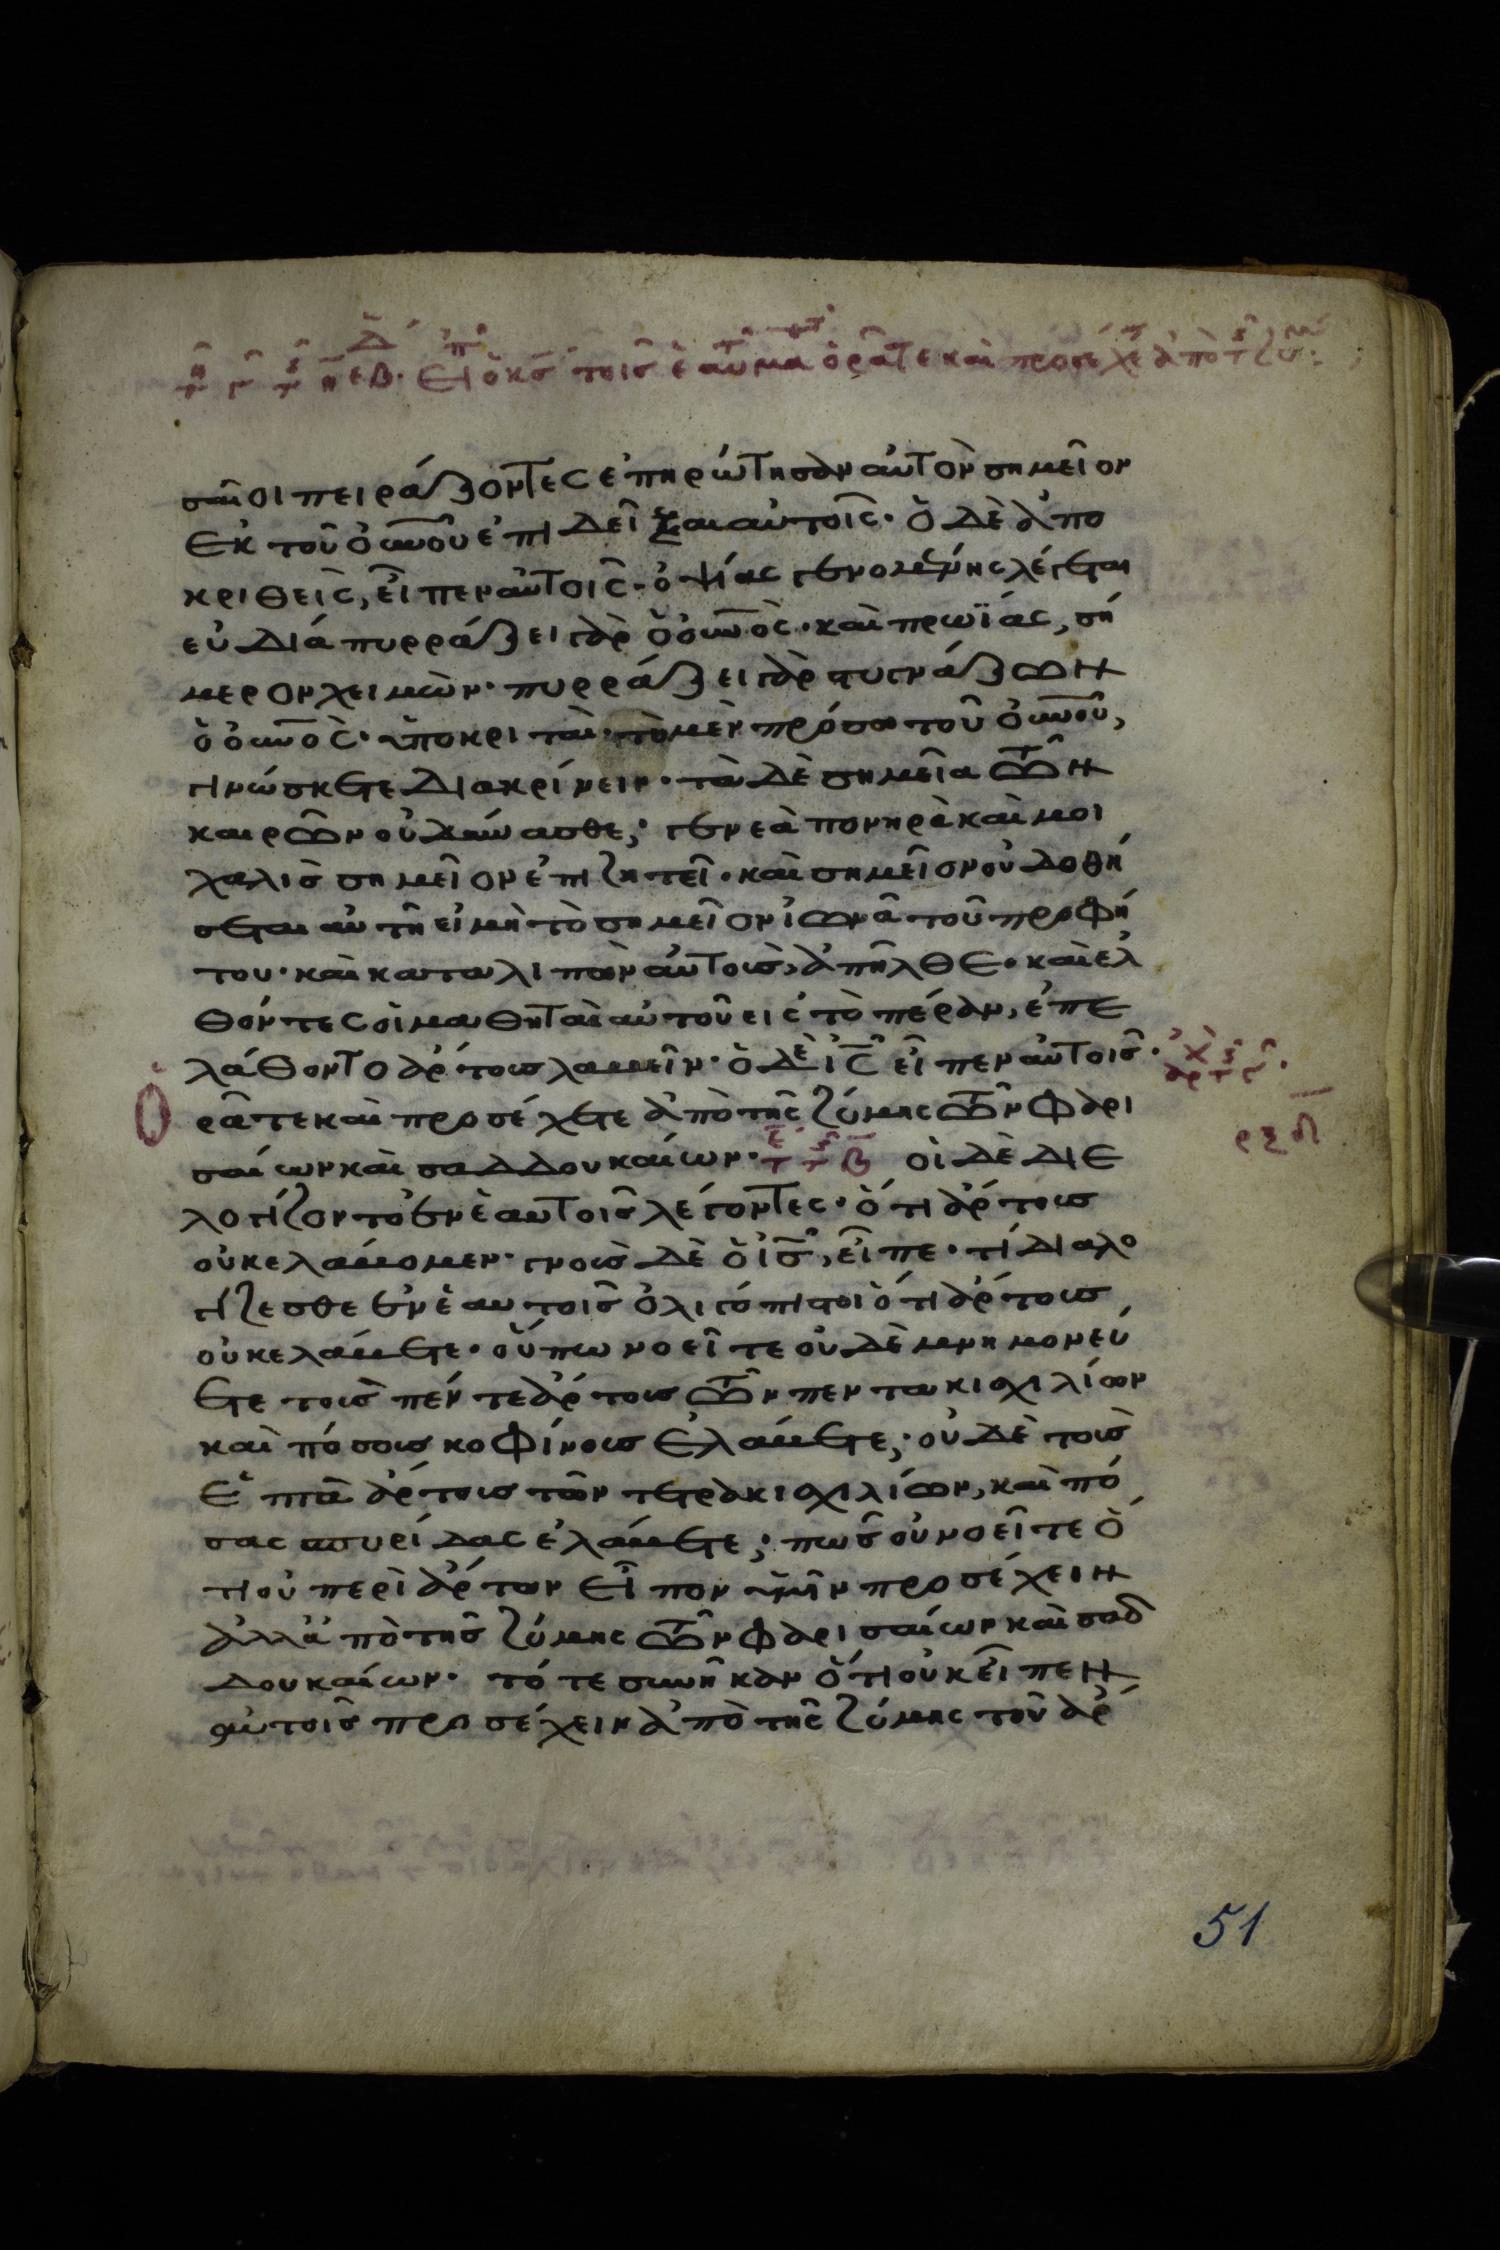 εἶπ ὁ κσ τοῖσ ἑαυτ μα ὁρᾶτε και προσέχετ ἀπὸ τησ ζυμ
σαῖοι πειράζοντες ἐπηρώτησαν αὐτὸν σημεῖον
ἐκ τοῦ οὐνοῦ ἐπιδεῖξαι αὐτοῖς· ὁ δὲ ἀπο
κριθεὶς, εἶπεν αὐτοῖς· ὀψίας γενομένης λέγεται
εὐδία πυρράζει γὰρ ὁ οὐνὸς· καὶ πρωϊας, σή
μερον χειμὼν· πυρράζει γὰρ στυγνάζων
ὁ οὐνὸς· ὑποκριταὶ· τὸ μὲν πρόσω τοῦ οὐνοῦ,
γινώσκετε διακρίνειν· τὰ δὲ σημεῖα τῶν
καιρῶν οὐ δύνασθε; γενεὰ πονηρὰ καὶ μοι
χαλὶσ σημεῖον ἐπιζητεῖ· καὶ σημεῖον οὐ δοθή
σεται αὐτῆ εἰ μὴ τὸ σημεῖον ἰωνᾶ τοῦ προφή
του· καὶ καταλιπὼν αὐτοὺσ, ἀπῆλθε· καὶ ἐλ
θόντες οἱ μαθηταὶ αὐτοῦ εἰς τὸ πέραν, ἐπε
λάθοντο ἄρτουσ λαβεῖν· ὁ δὲ ἰς εἶπεν αὐτοῖσ·
ὁρᾶτε καὶ προσέχετε ἀπὸ τῆς ζύμης τῶν φαρι
σαίων καὶ σαδδουκαίων· οἱ δὲ διε
λογίζοντο ἐν ἑαυτοῖσ λέγοντες· ὅτι ἄρτουσ
οὐκ ἐλάβομεν· γνοὺσ δὲ ὁ ἰσ, εἶπε· τί διαλο
γίζεσθε ἐν ἑαυτοῖσ ὀλιγόπιστοι ὅτι ἄρτουσ
οὐκ ἐλάβετε· οὔπω νοεῖτε οὐδὲ μνημονεύ
ετε τοὺσ πέντε ἄρτουσ τῶν πεντακισχιλίων
καὶ πόσουσ κοφίνουσ ἐλάβετε; οὐδὲ τοὺσ
ἑπτὰ ἄρτουσ τῶν τετρακισχιλίων, καὶ πό
σας σπυρίδας ἐλάβετε; πῶσ οὐ νοεῖτε ὅ
τι οὐ περὶ ἄρτων εἶπον ὑμῖν προσέχειν
ἀλλἀπὸ τῆσ ζύμης τῶν φαρισαίων καὶ σαδ
δουκαίων· τότε συνῆκαν ὅτι οὐκ εἶπεν
αὐτοῖσ προσέχειν ἀπὸ τῆς ζύμης τοῦ ἄρ
51